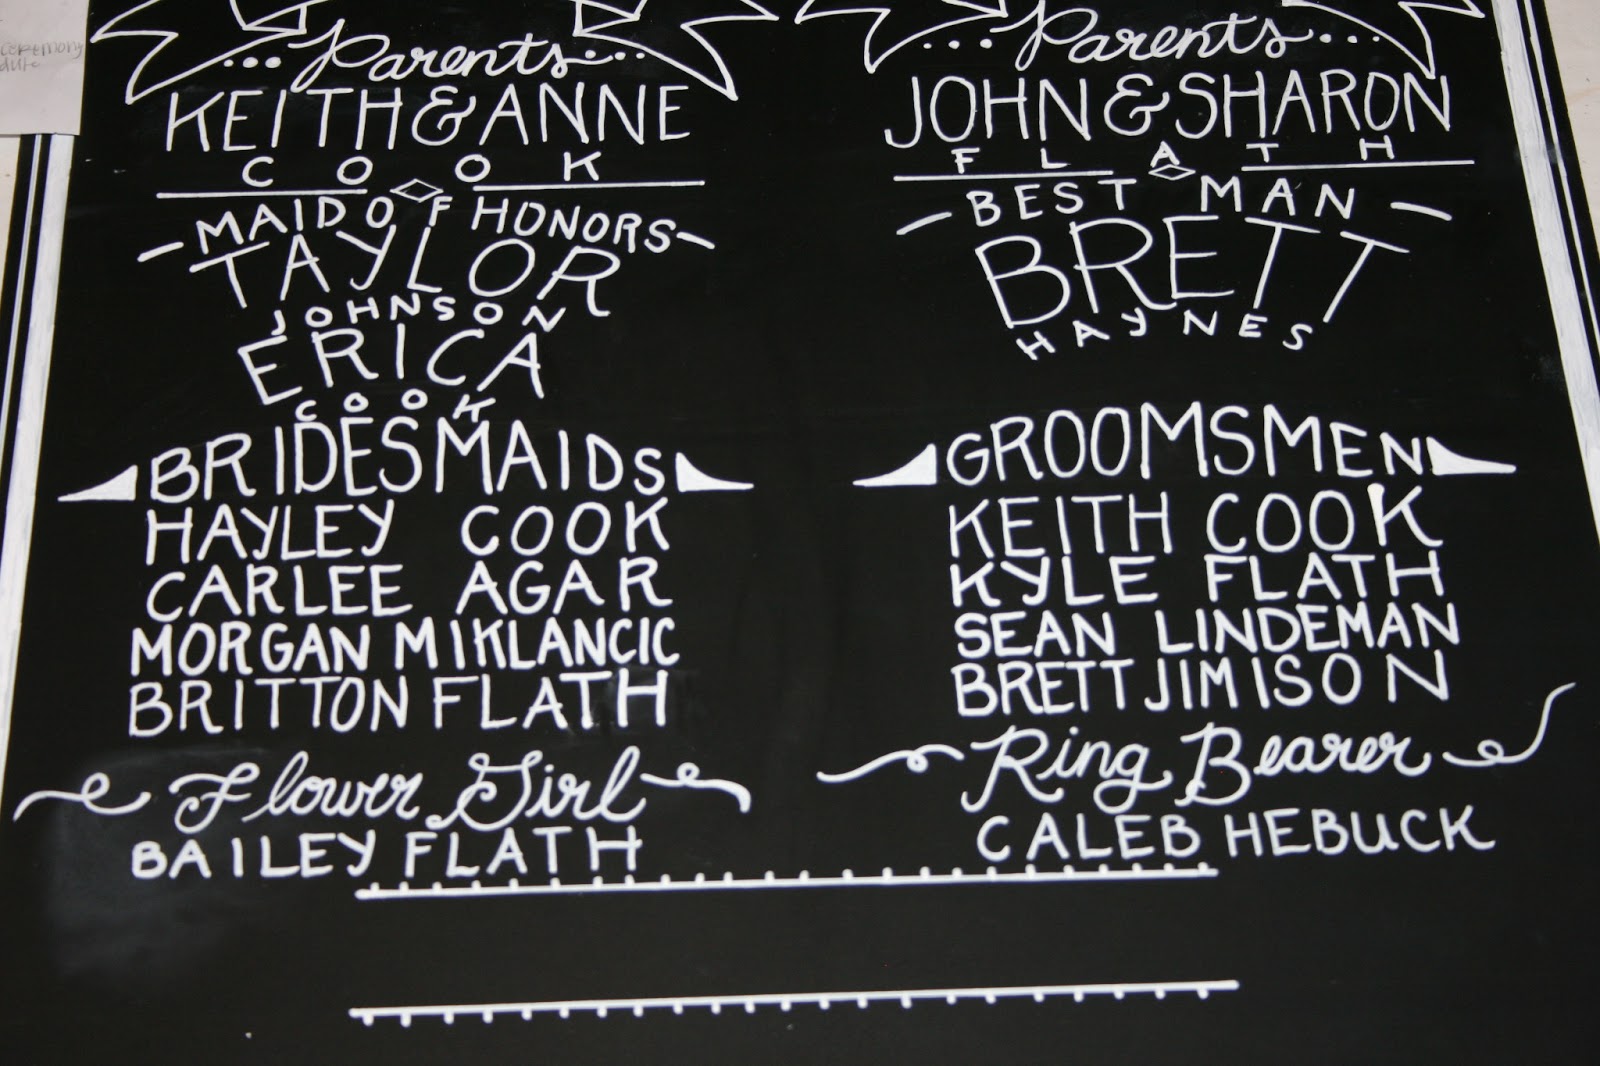 ceremony
Parents
KEITH & ANNE
COOK
MAID OF HONORS
TAYLOR
JOHNSON
ERICA
COOK
BRIDESMAIDS
HAYLEY COOK
CARLEE AGAR
MORGAN MIKLANCIC
BRITTON FLATH
Flower Girl
BAILEY FLATH
Parents
JOHN & SHARON
FLATH
BEST MAN
BRETT
HAYNES
GROOMSMEN
KEITH COOK
KYLE FLATH
SEAN LINDEMAN
BRETT JIMISON
Ring Bearer
CALEB HEBUCK